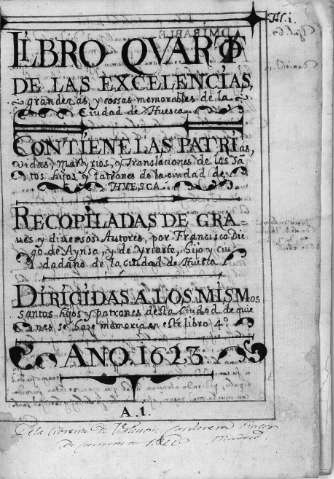 Fol. i.
LIBRO QVARTO
DE LAS EXCELENCIAS,
grandeças, y cossas memorables de la
Ciudad de Huesca
CONTIENE LAS PATRIas,
vidas, y martyrios, y Translaciones de los Sā
tos hijos y patrones de la ciudad de
HUESCA
RECOPILADAS DE GRA-
ues y diuersos Autores, por Francisco Die
go de Aynsa, y de Yriarte, hijo y ciu
dadano de la ciudad de Huesca
DIRIGIDAS À LOS MISMos
santos hijos y patrones desta Ciudad de quie
nes se haze memoria en este libro 4º
ANO. 1623
A. 1.
De la librería de